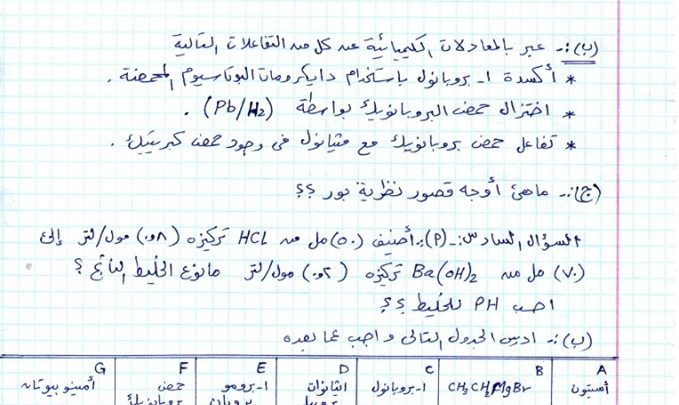 (ب):- عبر بالمعادلات الكيميائية عن كل من التفاعلات التالية
* أكسدة ١- بروبانول باستخدام دايكرومات البوتاسيوم المحمضة .
* اختزال حمض البروبانويك بواسطة (Pb/H₂) .
* تفاعل حمض بروبانويك مع ميثانول في وجود حمض كبريتيك .
(ج):- ماهي أوجه قصور نظرية بور ؟؟
السؤال السادس:- (P):- أضيف (٥٠) مل من HCL تركيزه (٠,٨) مول/لتر إلى
(٧٠) مل من Ba(OH)₂ تركيزه (٠,٢) مول/لتر مانوع الخليط الناتج ؟
احسب PH للخليط ؟؟
(ب):- ادرس الجدول التالي واجب عما بعده
A B C D E F G
أسيتون CH₃CH₂MgBr ١-بروبانول ١-برومو حمض أمينو بيوتان